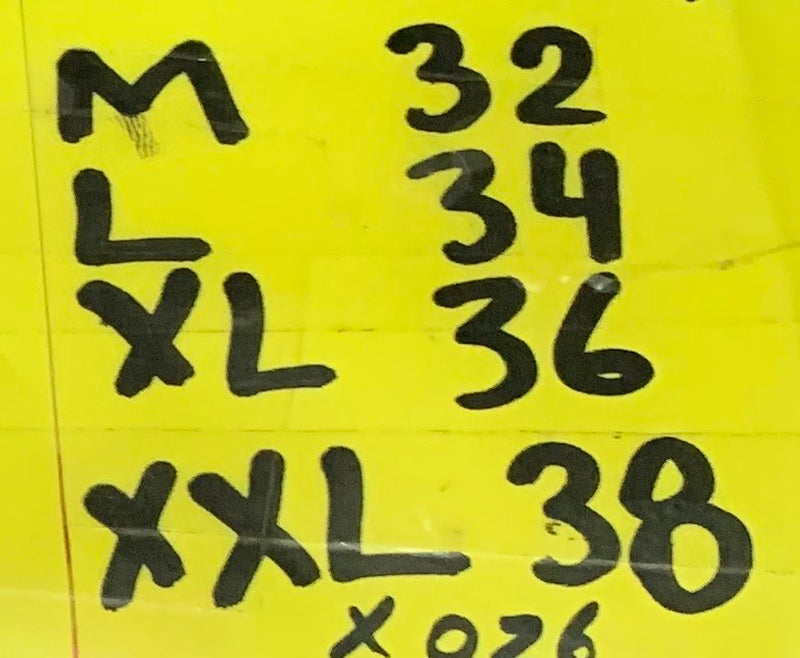 M 32
L 34
XL 36
XXL 38